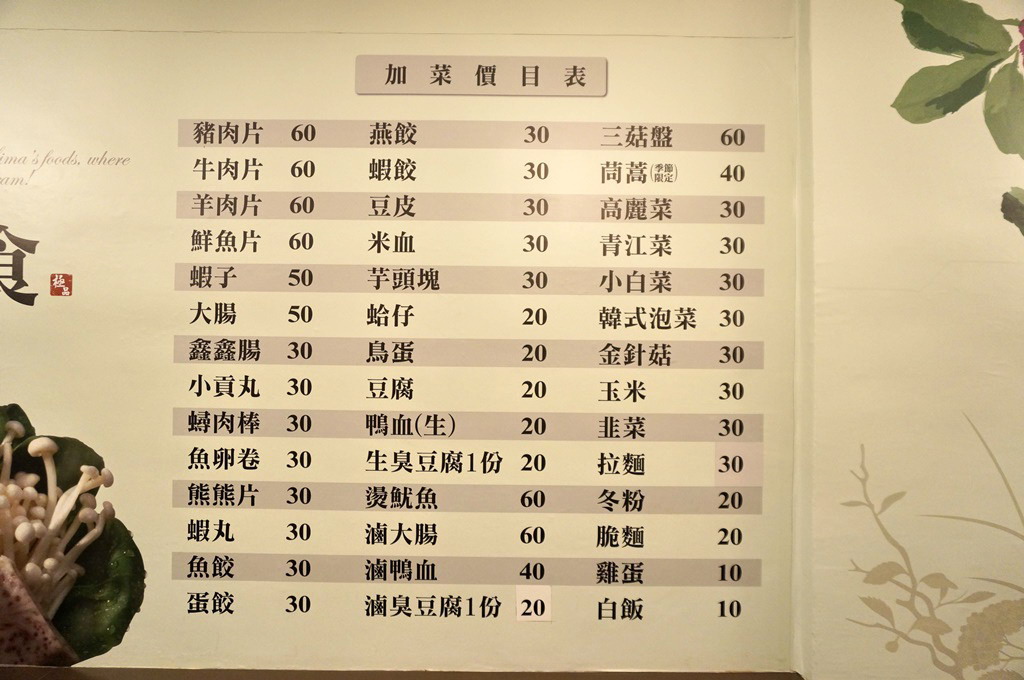 加菜價目表
豬肉片 60 燕餃 30 三菇盤 60
牛肉片 60 蝦餃 30 茼蒿(季節限定) 40
羊肉片 60 豆皮 30 高麗菜 30
鮮魚片 60 米血 30 青江菜 30
蝦子 50 芋頭塊 30 小白菜 30
大腸 50 蛤仔 20 韓式泡菜 30
鑫鑫腸 30 鳥蛋 20 金針菇 30
小貢丸 30 豆腐 20 玉米 30
蟳肉棒 30 鴨血(生) 20 韭菜 30
魚卵卷 30 生臭豆腐1份 20 拉麵 30
熊熊片 30 燙魷魚 60 冬粉 20
蝦丸 30 滷大腸 60 脆麵 20
魚餃 30 滷鴨血 40 雞蛋 10
蛋餃 30 滷臭豆腐1份 20 白飯 10
ima's foods, where
ram!
食
極品